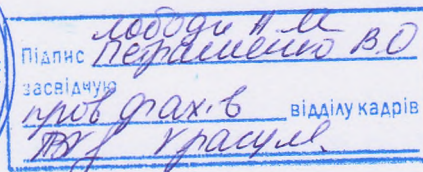 Лободи Н М
Підпис Петрашенко В.О
засвідчую
пров фахів відділу кадрів
Красуля